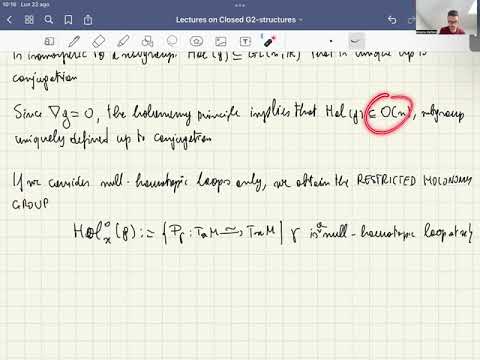 10:16 Lun 22 ago
Lectures on Closed G2-structures
is isomorphic to a subgroup Hol(g) ⊆ GL(n,ℝ) that is unique up to
conjugation
Since ∇g=0, the holonomy principle implies that Hol(g) ⊆ O(n), subgroup
uniquely defined up to conjugation.
If we consider null-homotopic loops only, we obtain the RESTRICTED HOLONOMY
GROUP
Hol⁰ₓ(g) := { P_γ : TₓM ⥲ TₓM | γ is a null-homotopic loop at x}